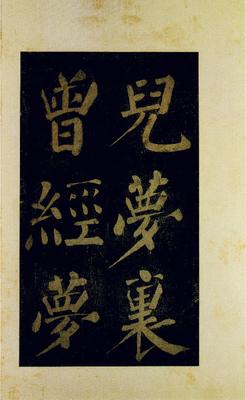 兒夢裏
曾經夢